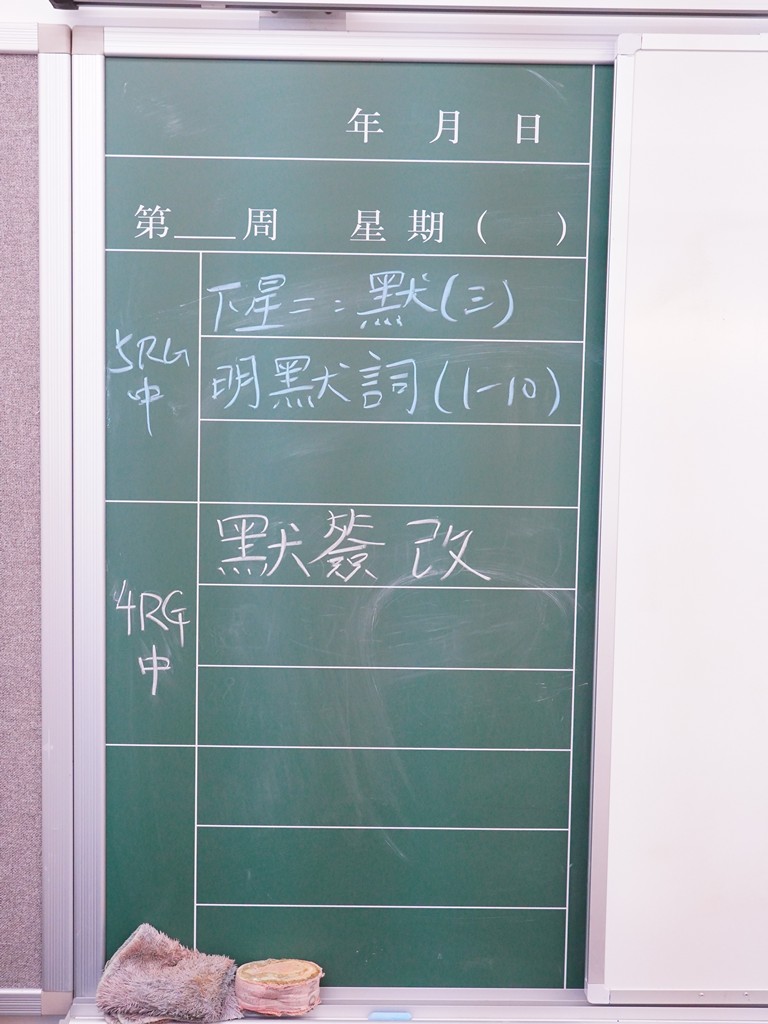 年 月 日
第___周 星期( )
5RG中
下星二:默(三)
明默詞(1-10)
4RG中
默簽改